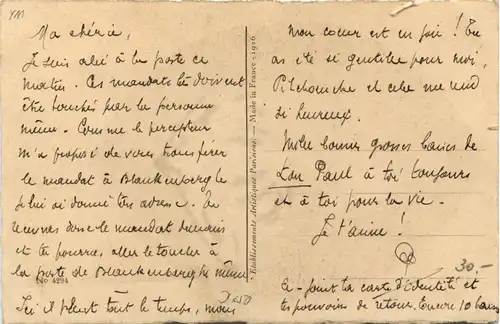 Ma chérie,
Je suis allé à la poste ce
matin. Ces mandats là doivent
être touchés par la personne
même. Comme le percepteur
m'a proposé de vous transférer
le mandat à Blankenberghe
je lui ai donné ton adresse. Tu
recevras donc le mandat demain
et tu pourras aller le toucher à
la poste de Blankenberghe même.
Ici il pleut tout le temps, mais
mon coeur est en joie ! Tu
as été si gentille pour moi,
et cela me rend
si heureux.
Mille bonnes grosses baises de
Ton Paul à toi toujours
et à toi pour la vie.
Je t'aime !
P
Ci-joint ta carte d'identité et
tes pouvoirs de retour. Encore 10
Etablissements Artistiques Parisiens. — Made in France - 1926
No 4294
30.-